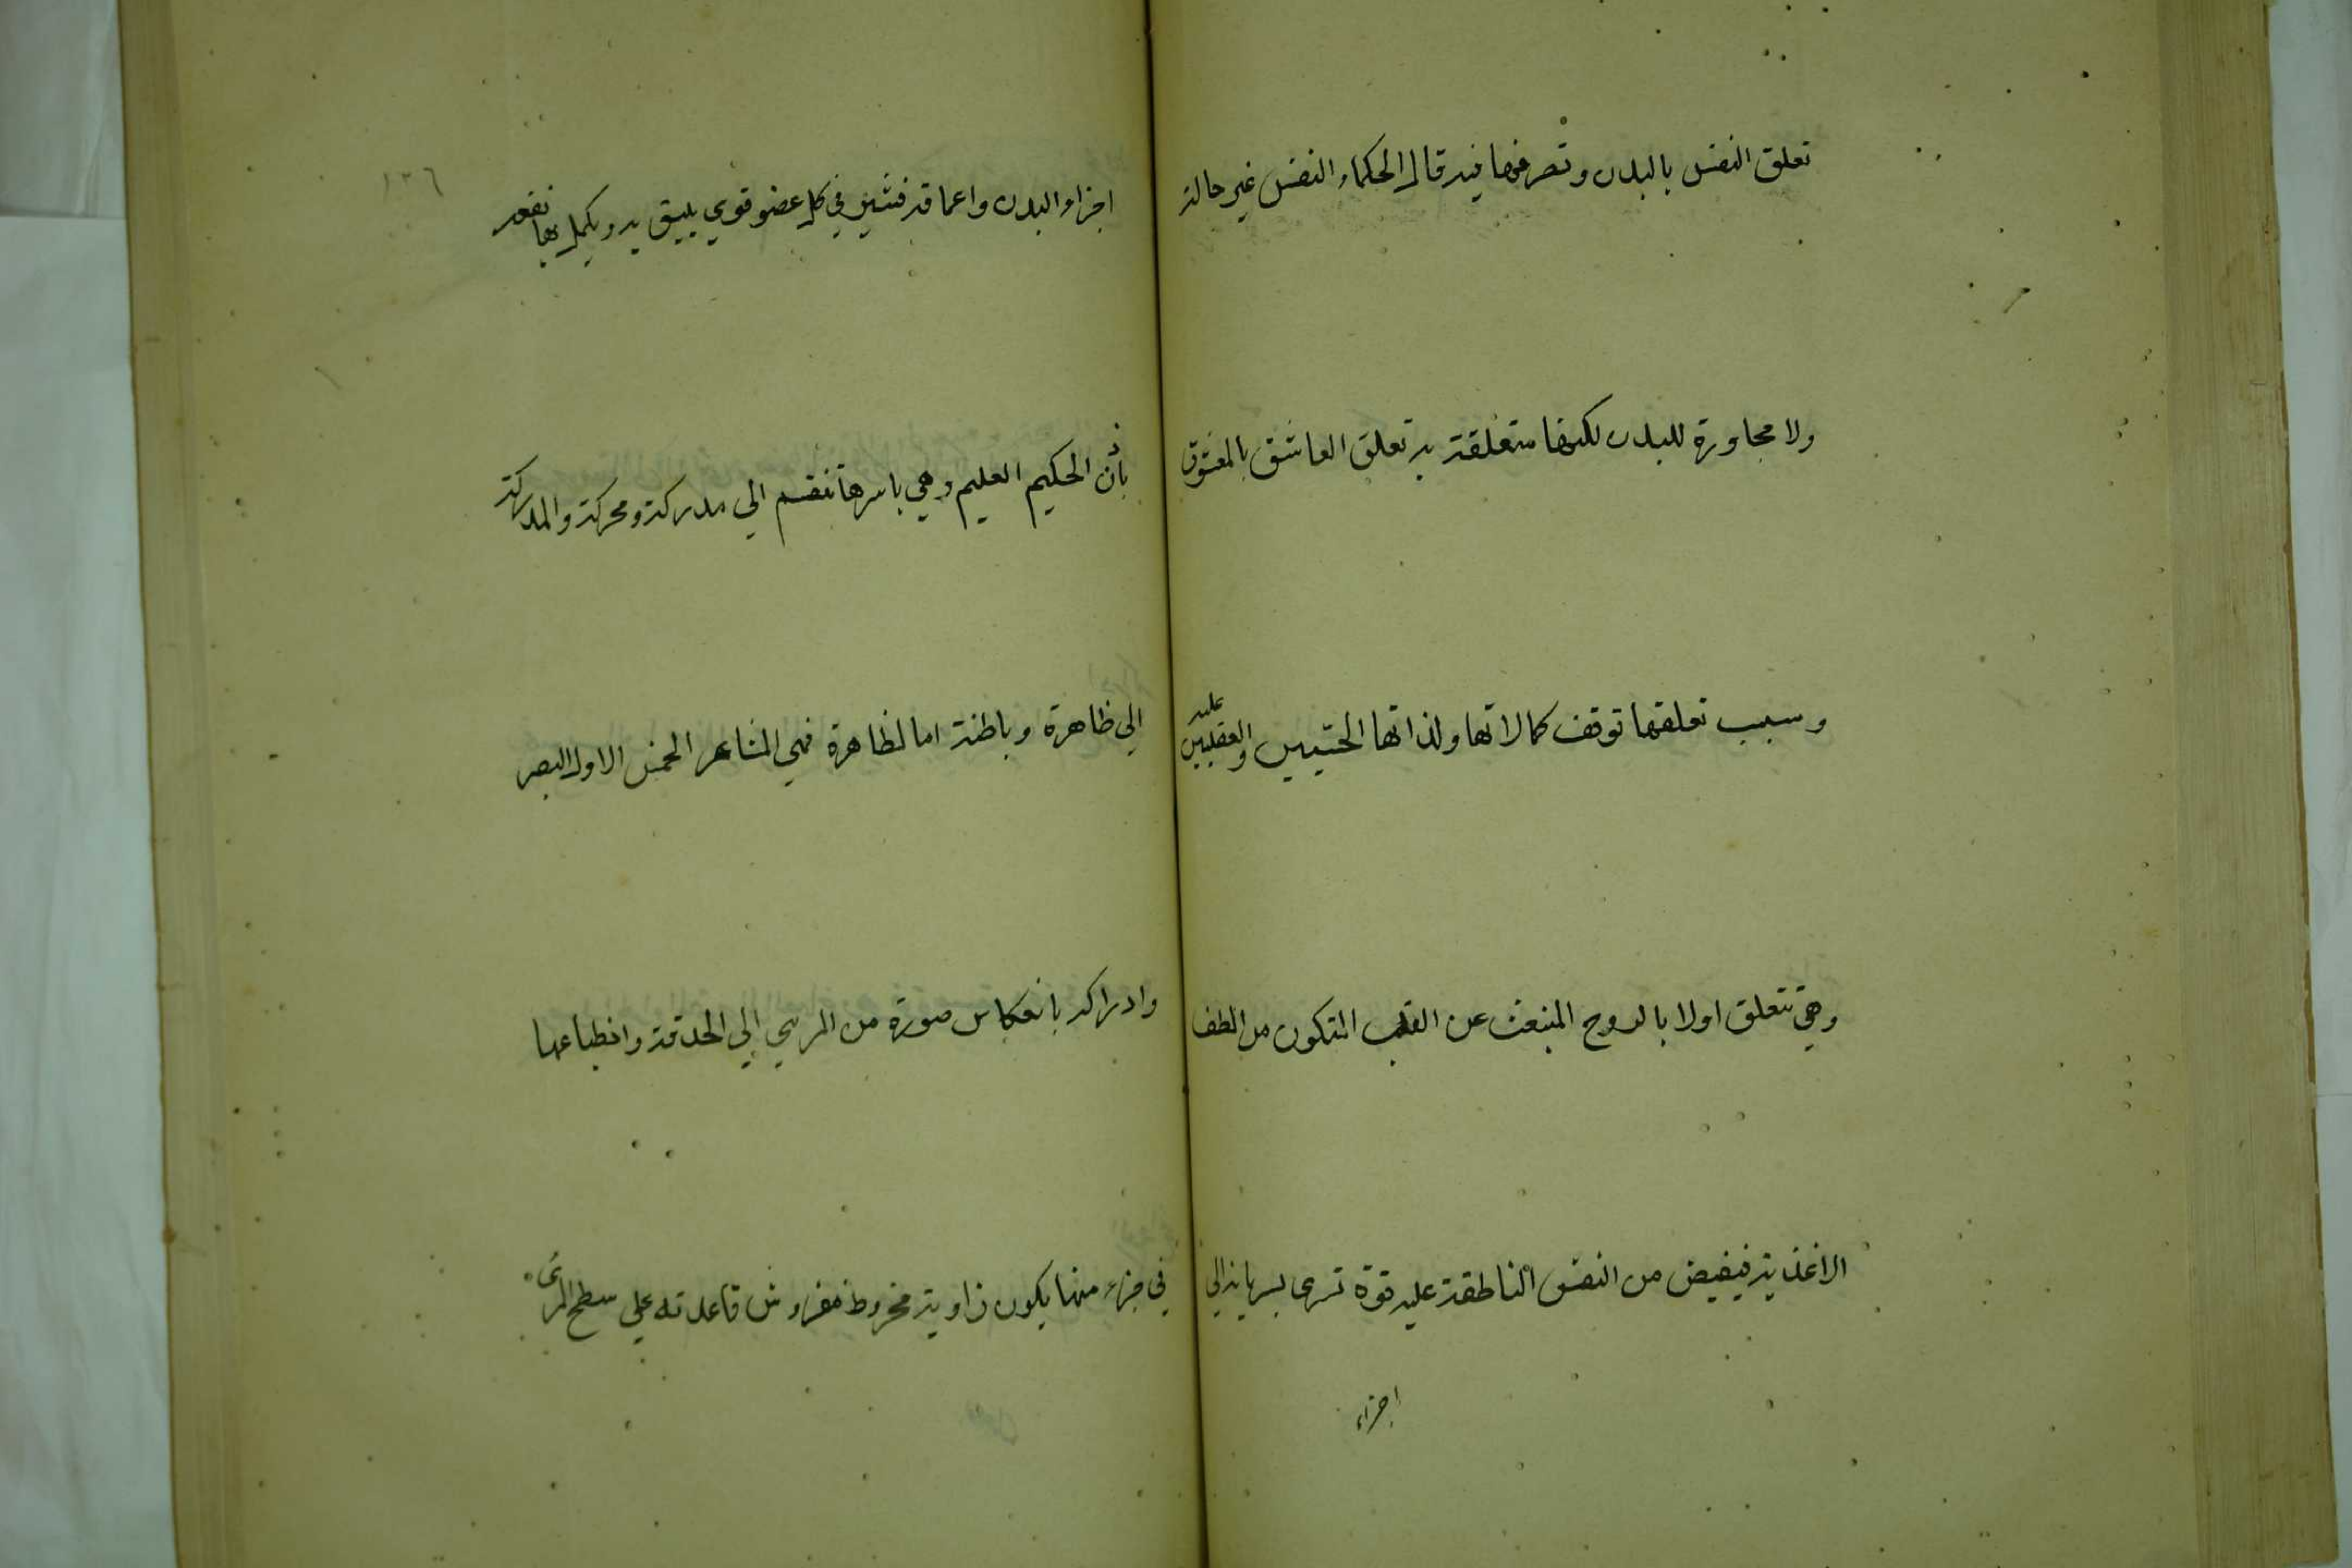 تعلق النفس بالبدن وتصرفها فيه قال الحكماء النفس غير حالة
ولا مجاورة للبدن لكنها متعلقة به تعلق العاشق بالمعشوق
وسبب تعلقها توقف كمالاتها ولذاتها الحسيين والعقليين عليه
وهي تتعلق اولا بالروح المنبعث عن القلب المتكون من الطف
الاغذية فيفيض من النفس الناطقة عليه قوة تسرى بسريانه الي
اجزاء
١٣٦
اجزاء البدن واعماقه فتثير في كل عضو قوي يليق به ويكمل بها نفعه
بأذن الحكيم العليم وهي باسرها تنقسم الي مدركة ومحركة والمدركة
الي ظاهرة وباطنة اما الظاهرة فهي المشاعر الخمس الاول البصر
وادراكه بانعكاس صورة من المرءي الي الحدقة وانطباعها
في جزء منها يكون زاوية مخروط مفروض قاعدته علي سطح المرئى